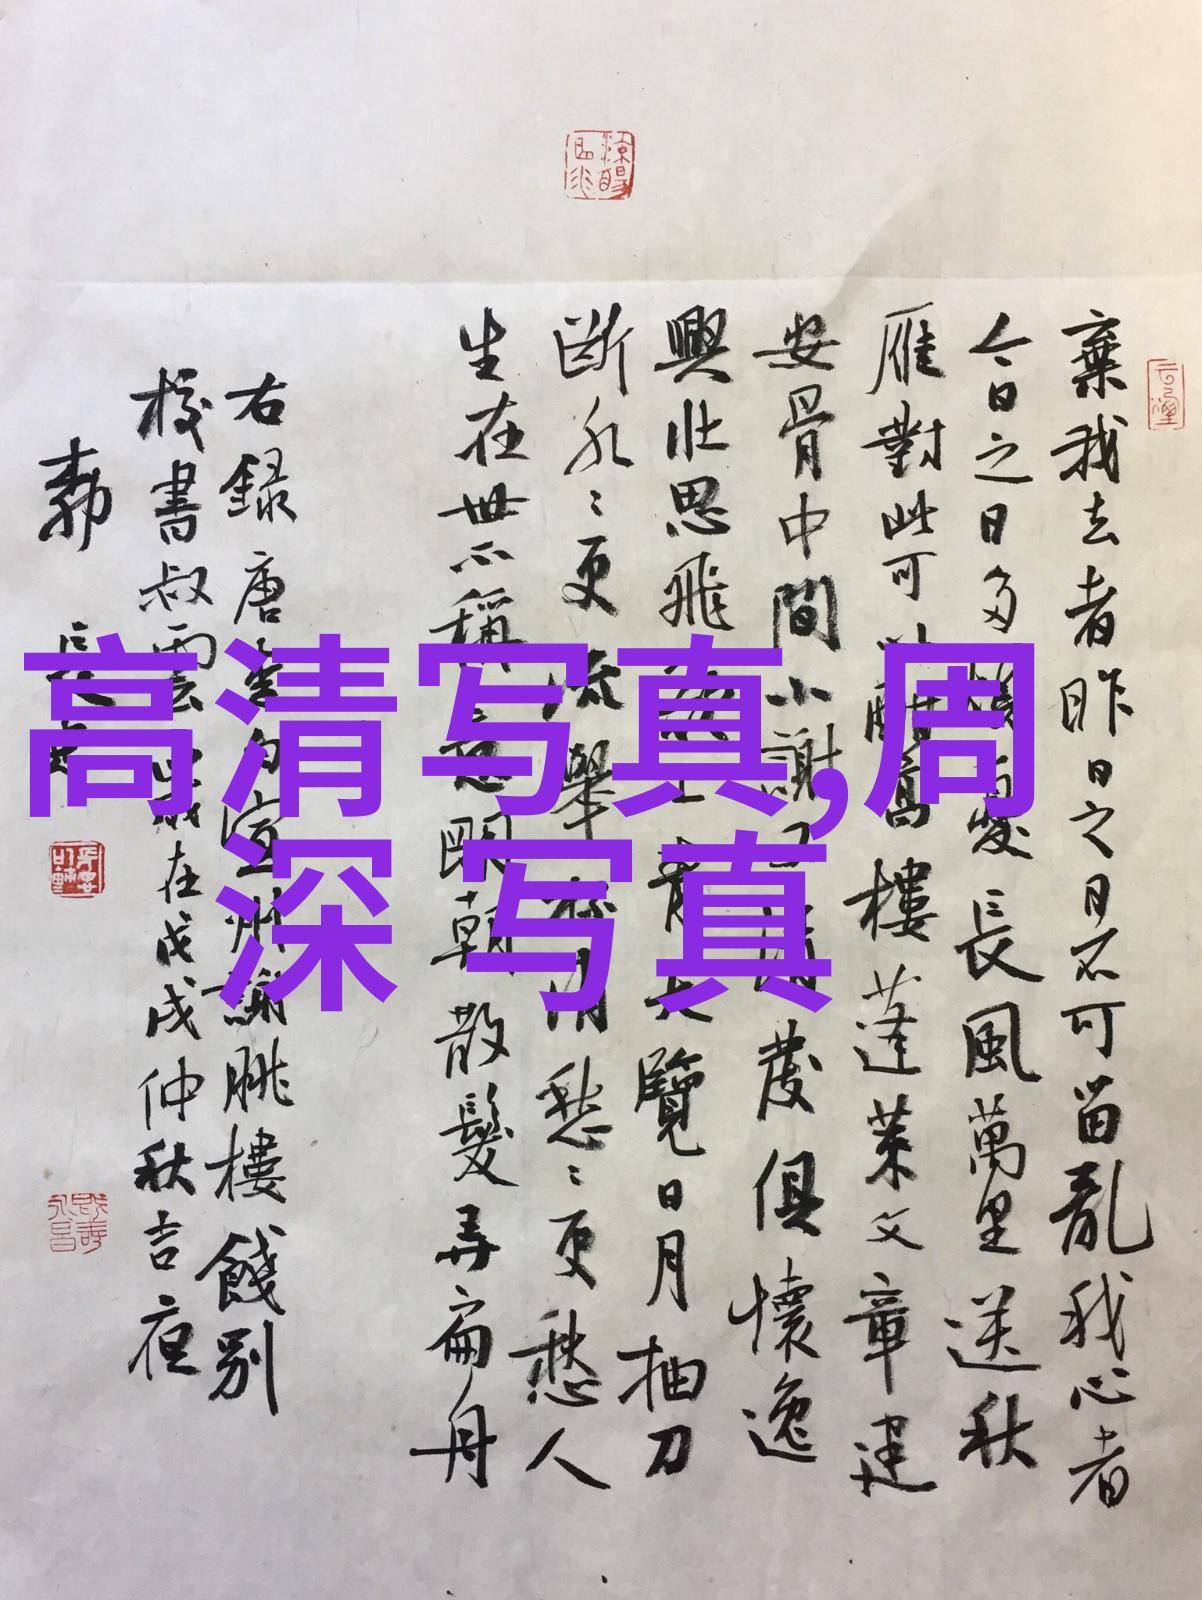 高清写真,周
深 写真
棄我去者昨日之日不可留亂我心者
今日之日多煩憂長風萬里送秋
雁對此可以酣高樓蓬萊文章建
安骨中間小謝又清發俱懷逸
興壯思飛欲上青天覽日月抽刀
断水〻更流舉杯消愁〻更愁人
生在世不稱意明朝散髮弄扁舟
右録唐李白宣州謝朓樓餞别
校書叔雲歲在戊戌仲秋吉夜